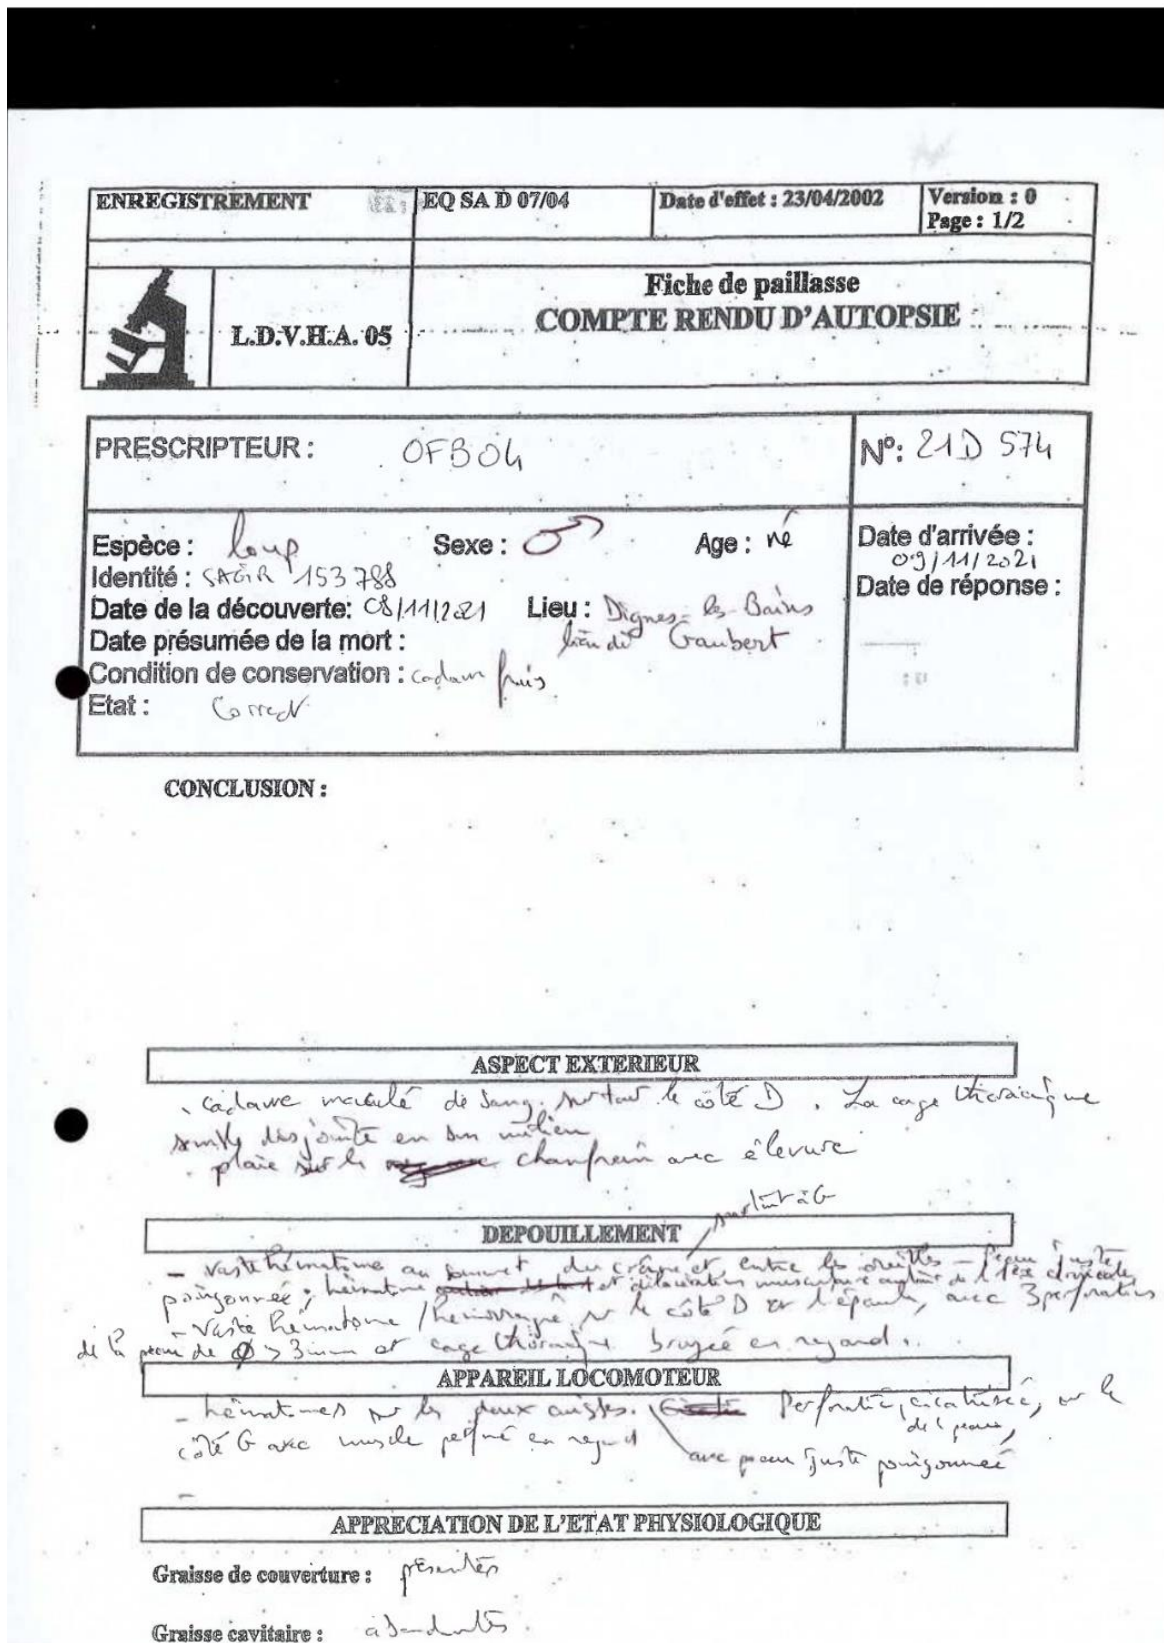 ENREGISTREMENT EQ SA D 07/04 Date d'effet : 23/04/2002 Version : 0
Page : 1/2
Fiche de paillasse
COMPTE RENDU D'AUTOPSIE
L.D.V.H.A. 05
PRESCRIPTEUR : OFB04 N°: 21D 574
Espèce : loup Sexe : ♂ Age : né Date d'arrivée :
09/11/2021
Identité : SAGIR 153788 Date de réponse :
Date de la découverte: 08/11/2021 Lieu : Dignes-les-Bains
Date présumée de la mort : lieu dit Gaubert
Condition de conservation : cadavre frais
Etat : Correct
CONCLUSION :
ASPECT EXTERIEUR
. Cadavre maculé de sang. surtout le côté D. La cage thoracique
semble disjointe en son milieu
. plaie sur le chanfrein avec élevure
surtout à G
DEPOUILLEMENT
- Vaste hématome au sommet du crâne et entre les oreilles - peau juste
poinçonnée, hématome et dilacération musculaire autour de l'
- Vaste hématome / hémorragie sur le côté D et l'épaule, avec 3 perforations
de la peau de Ø > 3 mm et cage thoracique broyée en regard.
APPAREIL LOCOMOTEUR
- hématomes sur les deux cuisses. Perforation, cicatrisée, sur le
de la peau,
côté G avec muscle perforé en regard avec peau juste poinçonnée
APPRECIATION DE L'ETAT PHYSIOLOGIQUE
Graisse de couverture : présentes
Graisse cavitaire : abondantes